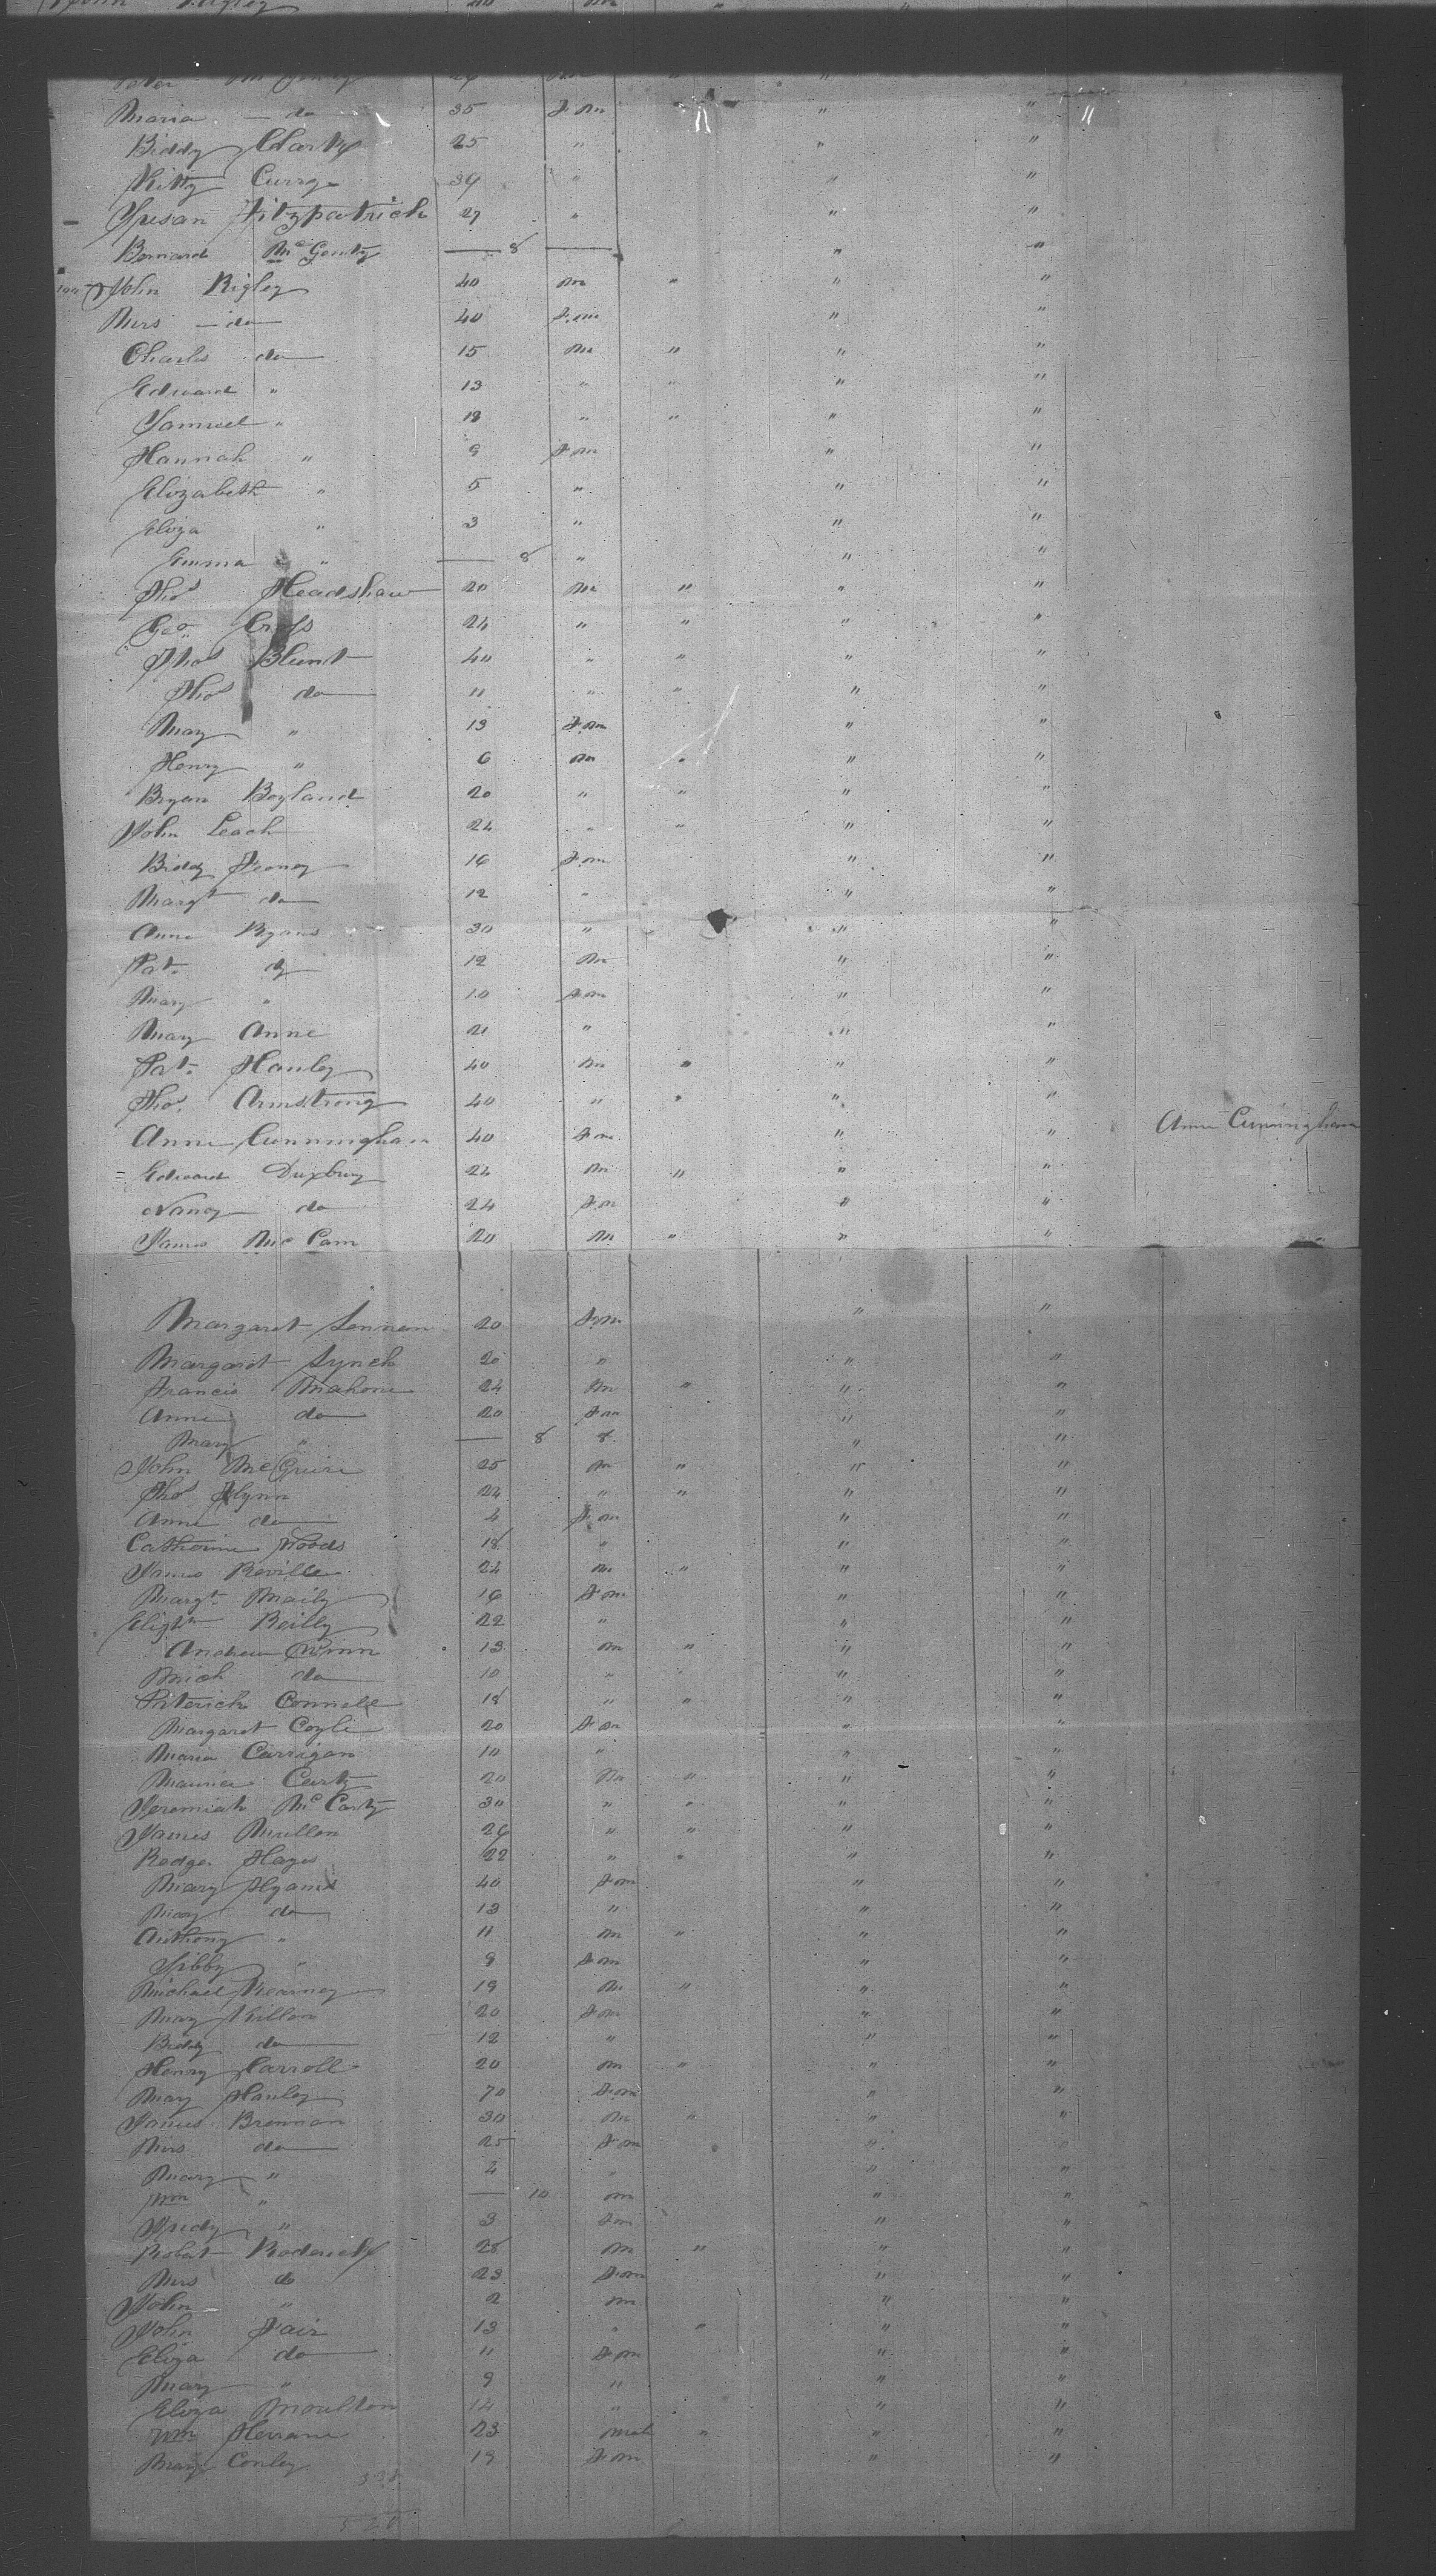 Maria — do 35 Fem " " "
Biddy Clarke 25 " " "
Kitty 30 " " "
Susan Fitzpatrick 27 " " "
Bernard McGenty — 8 — " "
John Rigley 40 m " " "
Mrs — do 40 Fem " "
Charles do 15 m " " "
Edward " 13 " " " "
Samuel " " " " "
Hannah " 9 Fem " "
Elizabeth " 5 " " "
Eliza " 3 " " "
Emma " — 8 " " "
Thos Headshaw 20 m " " "
Geo. Cross 24 " " " "
Thos Blunt 40 " " " "
Thos do 11 " " " "
Mary " 13 Fem " "
Henry " 6 m " " "
Bryan Boyland 20 " " " "
John Leach 24 " " " "
Biddy Feeney 16 Fem " "
Margt do 12 " " "
Anne Ryans 30 " " "
Pat. do 12 m " "
Mary " 10 Fem " "
Mary Anne 21 " " "
Pat. Hanley 40 m " " "
Thos. Armstrong 40 " " " "
Anne Cunningham 40 Fem " " Anne Cunningham
= Edward Duxbury 24 m " " "
Nancy do 24 Fem " "
James McCam 20 m " " "
Margaret Lennon 20 Fem " "
Margaret Lynch 20 " " "
Francis Mahone 24 m " " "
Anne do 20 Fem " "
Mary " — 8 8 " "
John McGuire 25 m " " "
Thos Flynn 24 " " " "
Anne do 4 Fem " "
Catherine Woods 18 " " "
James Reville 24 m " " "
Margt. Maily 16 Fem " "
Reilly 22 " " "
Andrew Quinn 13 m " " "
Mich do 10 " " " "
Paterick Connell 18 " " " "
Margaret Coyle 20 Fem " "
Maria Carrigan 10 " " "
Maurice Carty 20 m " " "
Jeremiah McCarty 30 " " " "
James Mullen 26 " " " "
Rodger Hayes 22 " " " "
Mary Hyams 40 Fem " "
Mary do 13 " " "
Anthony " 11 m " " "
Sibby " 9 Fem " "
Michael Kearney 19 m " " "
Mary Killen 20 Fem " "
Biddy do 12 " " "
Henry Carroll 20 m " " "
Mary Hanley 70 Fem " "
James Brennan 30 m " " "
Mrs do 25 Fem " "
Mary " 4 " " "
Wm " — 10 m " "
Judy " 3 Fem " "
Robert Roderick 28 m " " "
Mrs do 23 Fem " "
John " 2 m " "
John Fair 13 " " " "
Eliza do 11 Fem " "
Mary " 9 " " "
Eliza Moulton 14 " " "
Wm 23 male " " "
Mary Conley 19 Fem " "